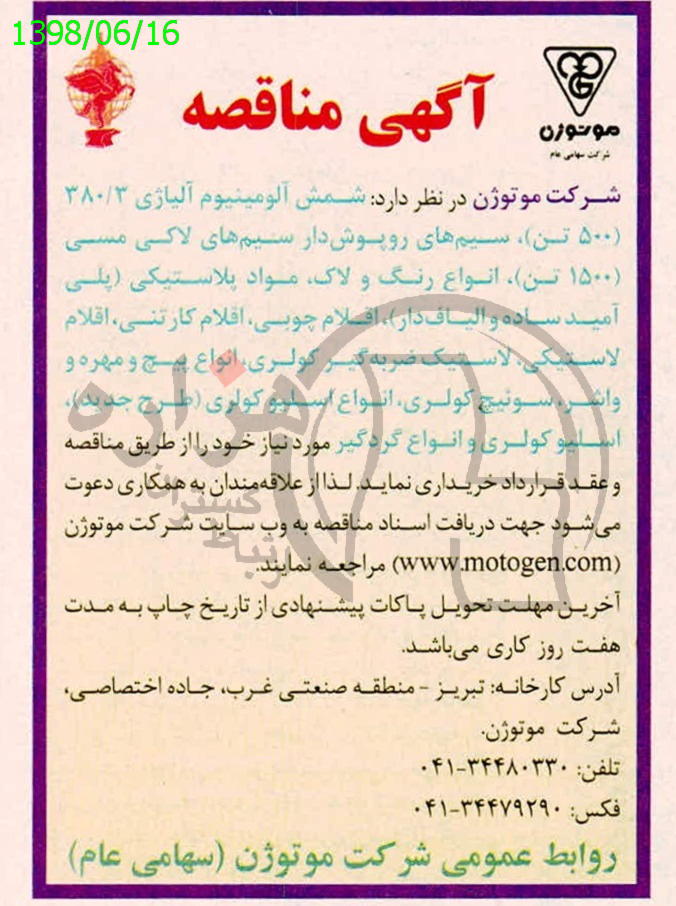 1398/06/16
آگهی مناقصه
موتوژن
شرکت سهامی عام
شرکت موتوژن در نظر دارد: شمش آلومینیوم آلیاژی ۳۸۰/۳
(۵۰۰ تن)، سیم‌های روپوش‌دار سیم‌های لاکی مسی
(۱۵۰۰ تن)، انواع رنگ و لاک، مواد پلاستیکی (پلی
آمید ساده و الیاف‌دار)، اقلام چوبی، اقلام کارتنی، اقلام
لاستیکی، لاستیک ضربه‌گیر کولری، انواع پیچ و مهره و
واشر، سوئیچ کولری، انواع اسلیو کولری (طرح جدید)،
اسلیو کولری و انواع گردگیر مورد نیاز خود را از طریق مناقصه
و عقد قرارداد خریداری نماید. لذا از علاقه‌مندان به همکاری دعوت
می‌شود جهت دریافت اسناد مناقصه به وب سایت شرکت موتوژن
(www.motogen.com) مراجعه نمایند.
آخرین مهلت تحویل پاکات پیشنهادی از تاریخ چاپ به مدت
هفت روز کاری می‌باشد.
آدرس کارخانه: تبریز - منطقه صنعتی غرب، جاده اختصاصی،
شرکت موتوژن.
تلفن: ۰۴۱-۳۴۴۸۰۳۳۰
فکس: ۰۴۱-۳۴۴۷۹۲۹۰
روابط عمومی شرکت موتوژن (سهامی عام)
هزاره